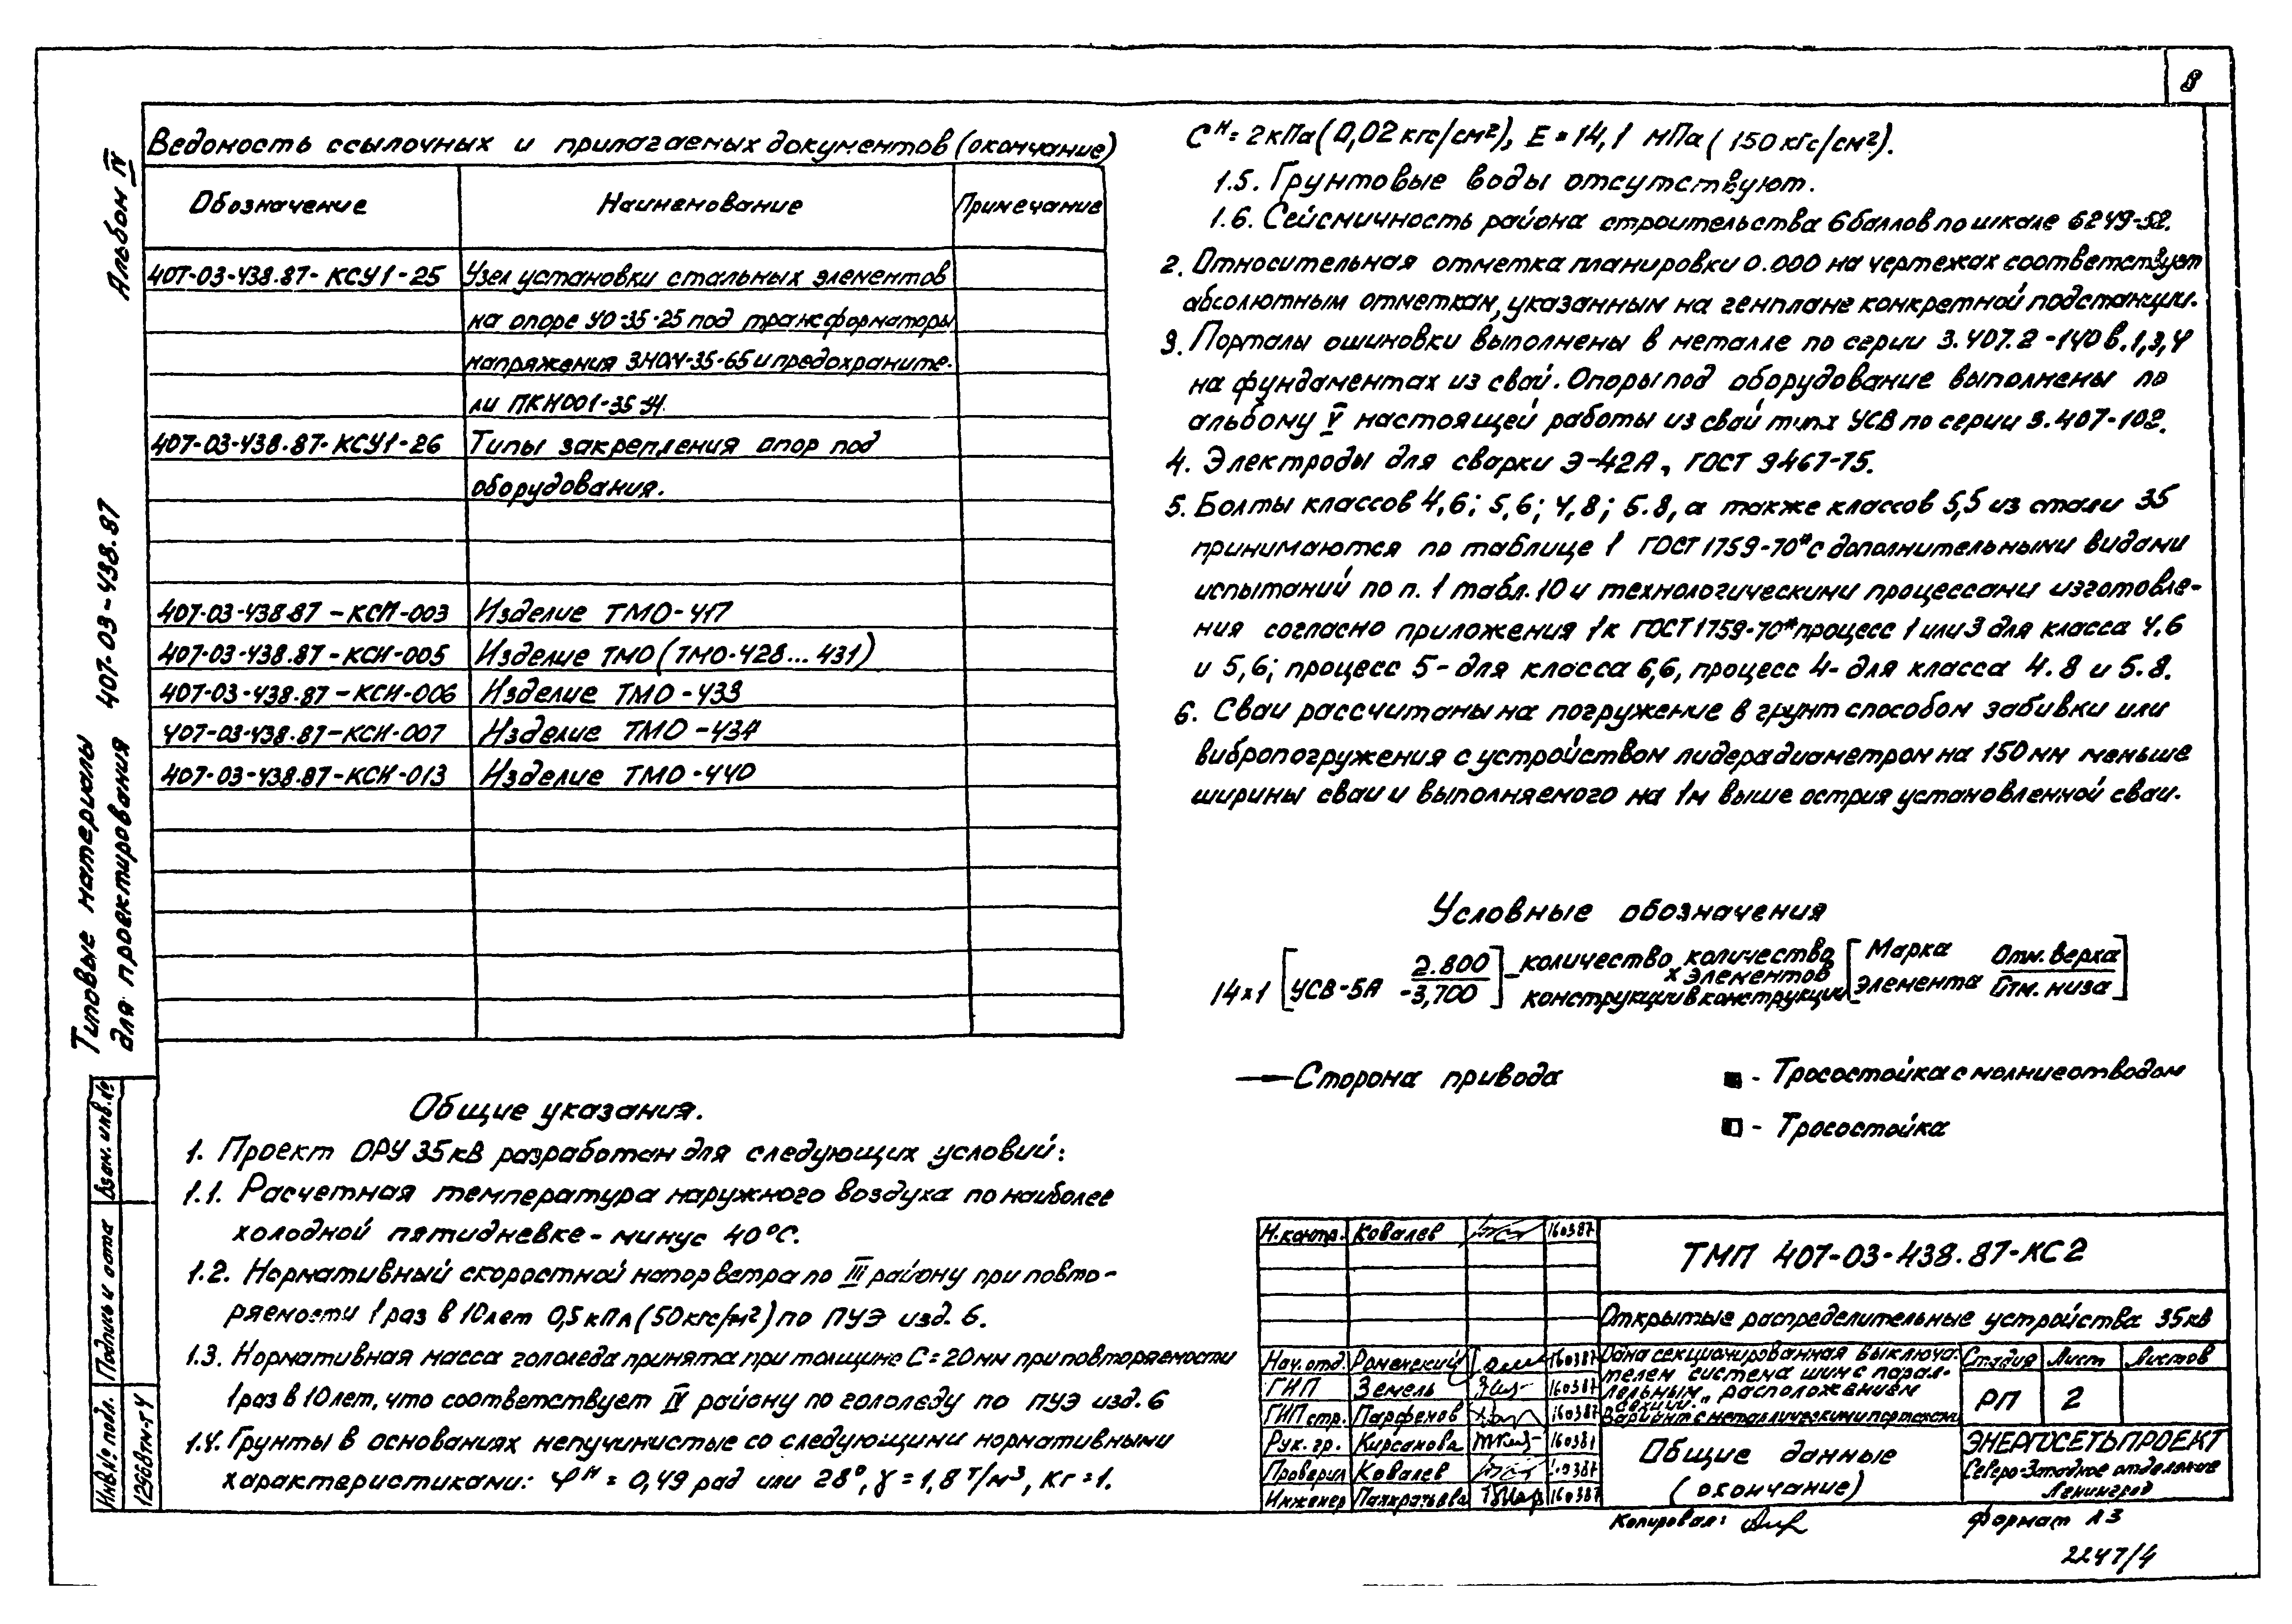 8
Альбом IV
Типовые материалы
для проектирования 407-03-438.87
Ведомость ссылочных и прилагаемых документов (окончание)
Обозначение Наименование Примечание
407-03-438.87-КСУ1-25 Узел установки стальных элементов
на опоре УО-35-25 под трансформаторы
напряжения ЗНОМ-35-65 и предохраните-
ли ПКН001-35У1.
407-03-438.87-КСУ1-26 Типы закрепления опор под
оборудования.
407-03-438.87-КСИ-003 Изделие ТМО-417
407-03-438.87-КСИ-005 Изделие ТМО (ТМО-428...431)
407-03-438.87-КСИ-006 Изделие ТМО-433
407-03-438.87-КСИ-007 Изделие ТМО-434
407-03-438.87-КСИ-013 Изделие ТМО-440
Общие указания.
1. Проект ОРУ 35кВ разработан для следующих условий:
1.1. Расчетная температура наружного воздуха по наиболее
холодной пятидневке - минус 40°С.
1.2. Нормативный скоростной напор ветра по III району при повто-
ряемости 1 раз в 10 лет 0,5 кПа (50 кгс/м²) по ПУЭ изд. 6.
1.3. Нормативная масса гололеда принята при толщине С=20мм при повторяемости
1 раз в 10 лет, что соответствует IV району по гололеду по ПУЭ изд. 6
1.4. Грунты в основаниях непучинистые со следующими нормативными
характеристиками: φᴴ = 0,49 рад или 28°, γ = 1,8 т/м³, Кг=1.
Сᴴ = 2кПа (0,02 кгс/см²), Е = 14,1 мПа (150 кгс/см²).
1.5. Грунтовые воды отсутствуют.
1.6. Сейсмичность района строительства 6 баллов по шкале 6249-52.
2. Относительная отметка планировки 0.000 на чертежах соответствует
абсолютным отметкам, указанным на генплане конкретной подстанции.
3. Порталы ошиновки выполнены в металле по серии 3.407.2-140 в.1,3,4
на фундаментах из свай. Опоры под оборудование выполнены по
альбому V настоящей работы из свай типа УСВ по серии 3.407-102.
4. Электроды для сварки Э-42А, ГОСТ 9467-75.
5. Болты классов 4,6; 5,6; 4,8; 5.8, а также классов 5,5 из стали 35
принимаются по таблице 1 ГОСТ 1759-70* с дополнительными видами
испытаний по п. 1 табл. 10 и технологическими процессами изготовле-
ния согласно приложения 1 к ГОСТ 1759-70* процесс 1 или 3 для класса 4.6
и 5,6; процесс 5- для класса 6,6, процесс 4- для класса 4.8 и 5.8.
6. Сваи рассчитаны на погружение в грунт способом забивки или
вибропогружения с устройством лидера диаметром на 150мм меньше
ширины сваи и выполняемого на 1м выше острия установленной сваи.
Условные обозначения
14×1 [УСВ-5А 2.800/-3,700] - количество конструкции × количество элементов в конструкции [Марка элемента Отм. верха/Отм. низа]
Сторона привода
- Тросостойка с молниеотводом
- Тросостойка
Взам. инв. №
Подпись и дата
Инв. № подл. 12968тм-т4
Н. контр. Ковалев 160387
Нач. отд. Роменский 160387
ГИП Земель 160387
ГИП стр. Парфенов 160387
Рук. гр. Кирсанова 160387
Проверил Ковалев 160387
Инженер 160387
ТМП 407-03-438.87-КС2
Открытые распределительные устройства 35кВ
Одна секционированная выключа-
телем система шин с парал-
лельным расположением
секций.
Вариант с металлическими порталами
Стадия Лист Листов
РП 2
Общие данные
(окончание)
ЭНЕРГОСЕТЬПРОЕКТ
Северо-Западное отделение
Ленинград
Копировал:
Формат А3
2247/4